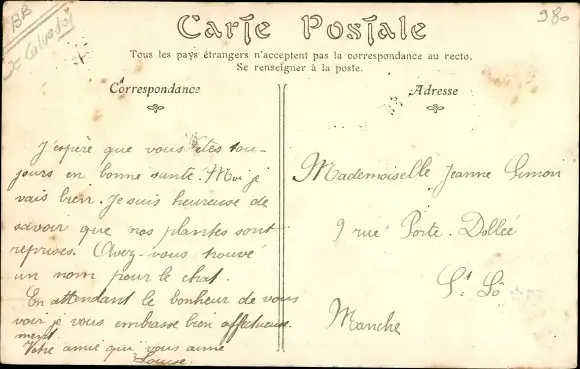 BB
Calvados
980
Carte Postale
Tous les pays étrangers n'acceptent pas la correspondance au recto.
Se renseigner à la poste.
Correspondance
J'espère que vous êtes tou-
jours en bonne santé. Moi je
vais bien. Je suis heureuse de
savoir que nos plantes sont
reprises. Avez-vous trouvé
un nom pour le chat.
En attendant le bonheur de vous
voir je vous embrasse bien affectueuse
ment.
Votre amie qui vous aime
Louise.
Adresse
Mademoiselle Jeanne Simon
9 rue Porte Dollée
St. Lô
Manche